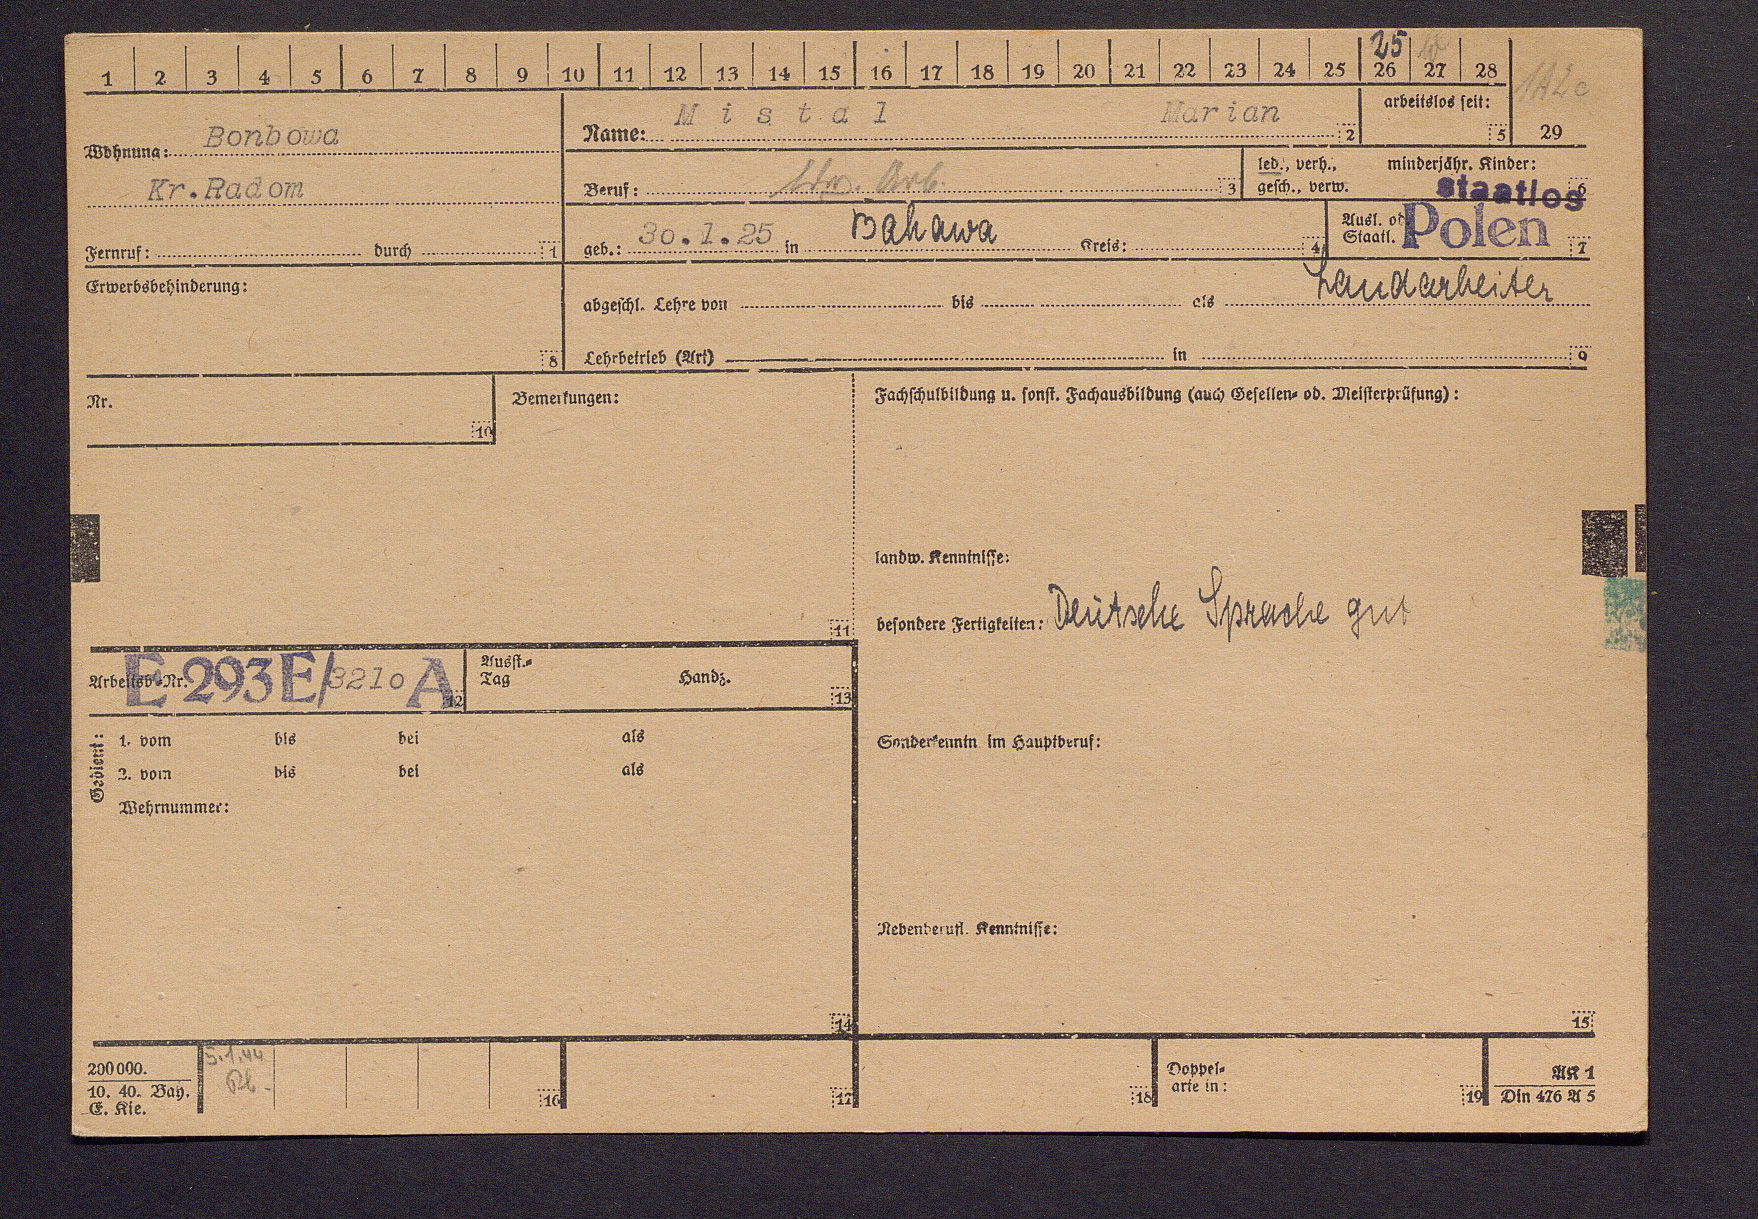 1 2 3 4 5 6 7 8 9 10 11 12 13 14 15 16 17 18 19 20 21 22 23 24 25 26 27 28
25
Wohnung: Bonbowa
Kr.Radom
Fernruf: durch 1
Name: Mistal Marian 2
arbeitslos seit: 5
29
Beruf: Arb. 3
led., verh., gesch., verw.
minderjähr. Kinder: 6
staatlos
geb.: 30.1.25 in Bahawa Kreis: 4
Ausl. od. Staatl. Polen 7
Erwerbsbehinderung: 8
abgeschl. Lehre von bis als Landarbeiter
Lehrbetrieb (Art) in 9
Nr. 10
Bemerkungen: 11
Fachschulbildung u. sonst. Fachausbildung (auch Gesellen- od. Meisterprüfung):
landw. Kenntnisse:
besondere Fertigkeiten: Deutsche Sprache gut
Arbeitsb.-Nr. E 293E/3210 A 12
Ausst.-Tag Handz. 13
Gedient:
1. vom bis bei als
2. vom bis bei als
Wehrnummer:
14
Sonderkenntn im Hauptberuf:
Nebenberufl. Kenntnisse:
15
200000.
10. 40. Bay.
E. Kie.
5.1.44
16
17
18
Doppel-
arte in:
19
AK 1
Din 476 A 5